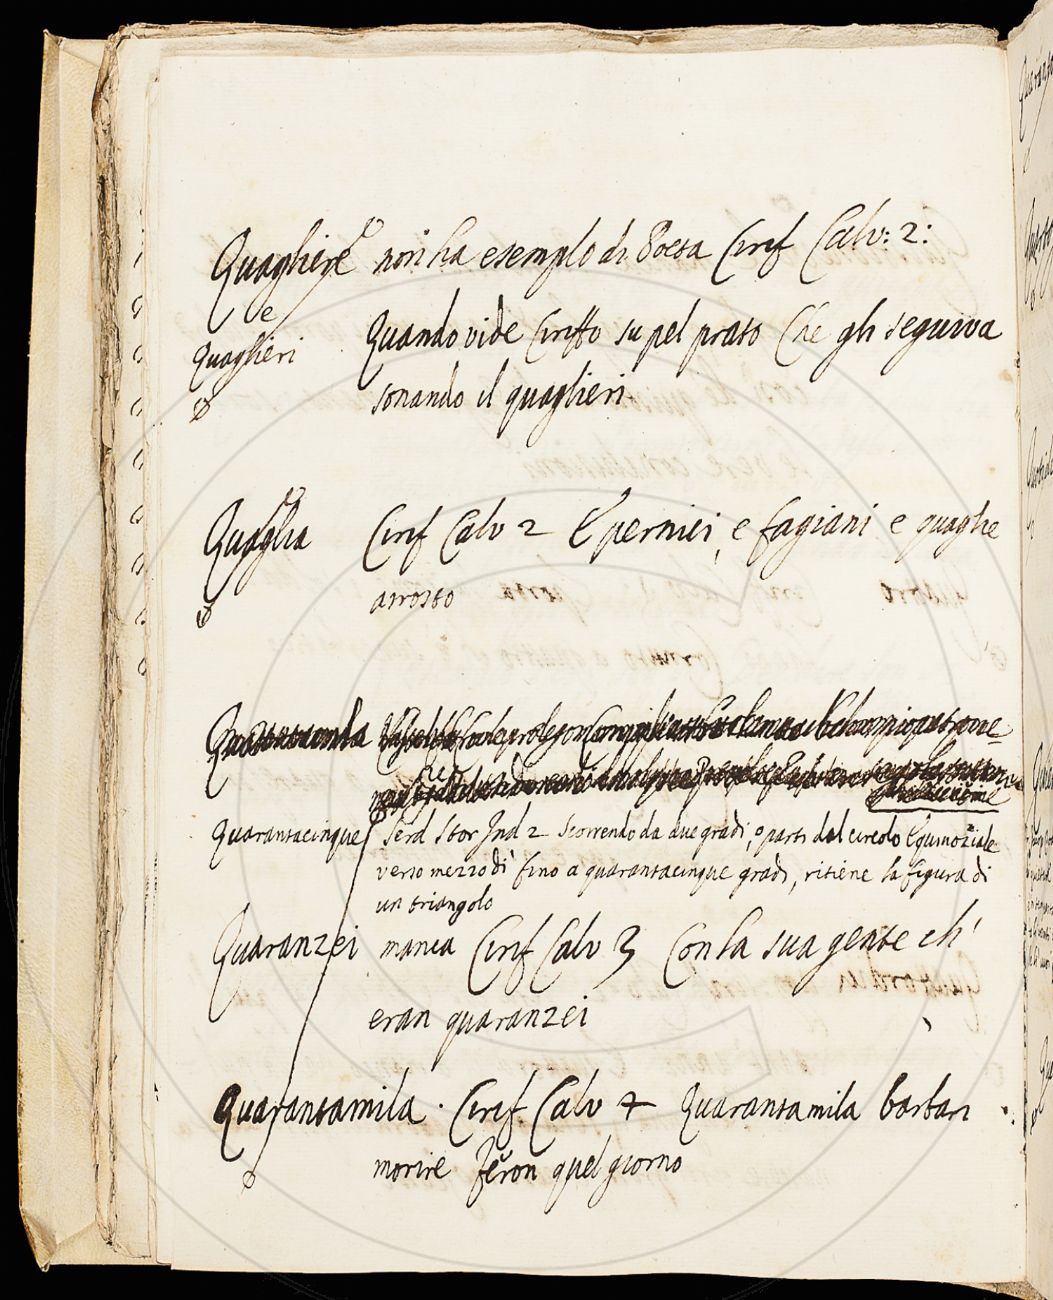 Quagliere non ha esemplo di Poeta Ciriff Calv: 2:
e
Quaglieri Quando vide Ciriffo su pel prato Che gli seguiva
sonando il quaglieri
Quaglia Cirif Calv 2 E pernici, e fagiani e quaglie
arrosto
Quarantacinque Serd Stor Ind 2 scorrendo da due gradi, o parti del circolo Equinoziale
verso mezzodì fino a quarantacinque gradi, ritiene la figura di
un triangolo
Quaranzei manca Cirif Calv 3 Con la sua gente ch'
eran quaranzei
Quarantamila. Cirif Calv 4 Quarantamila barbari
morire feron quel giorno